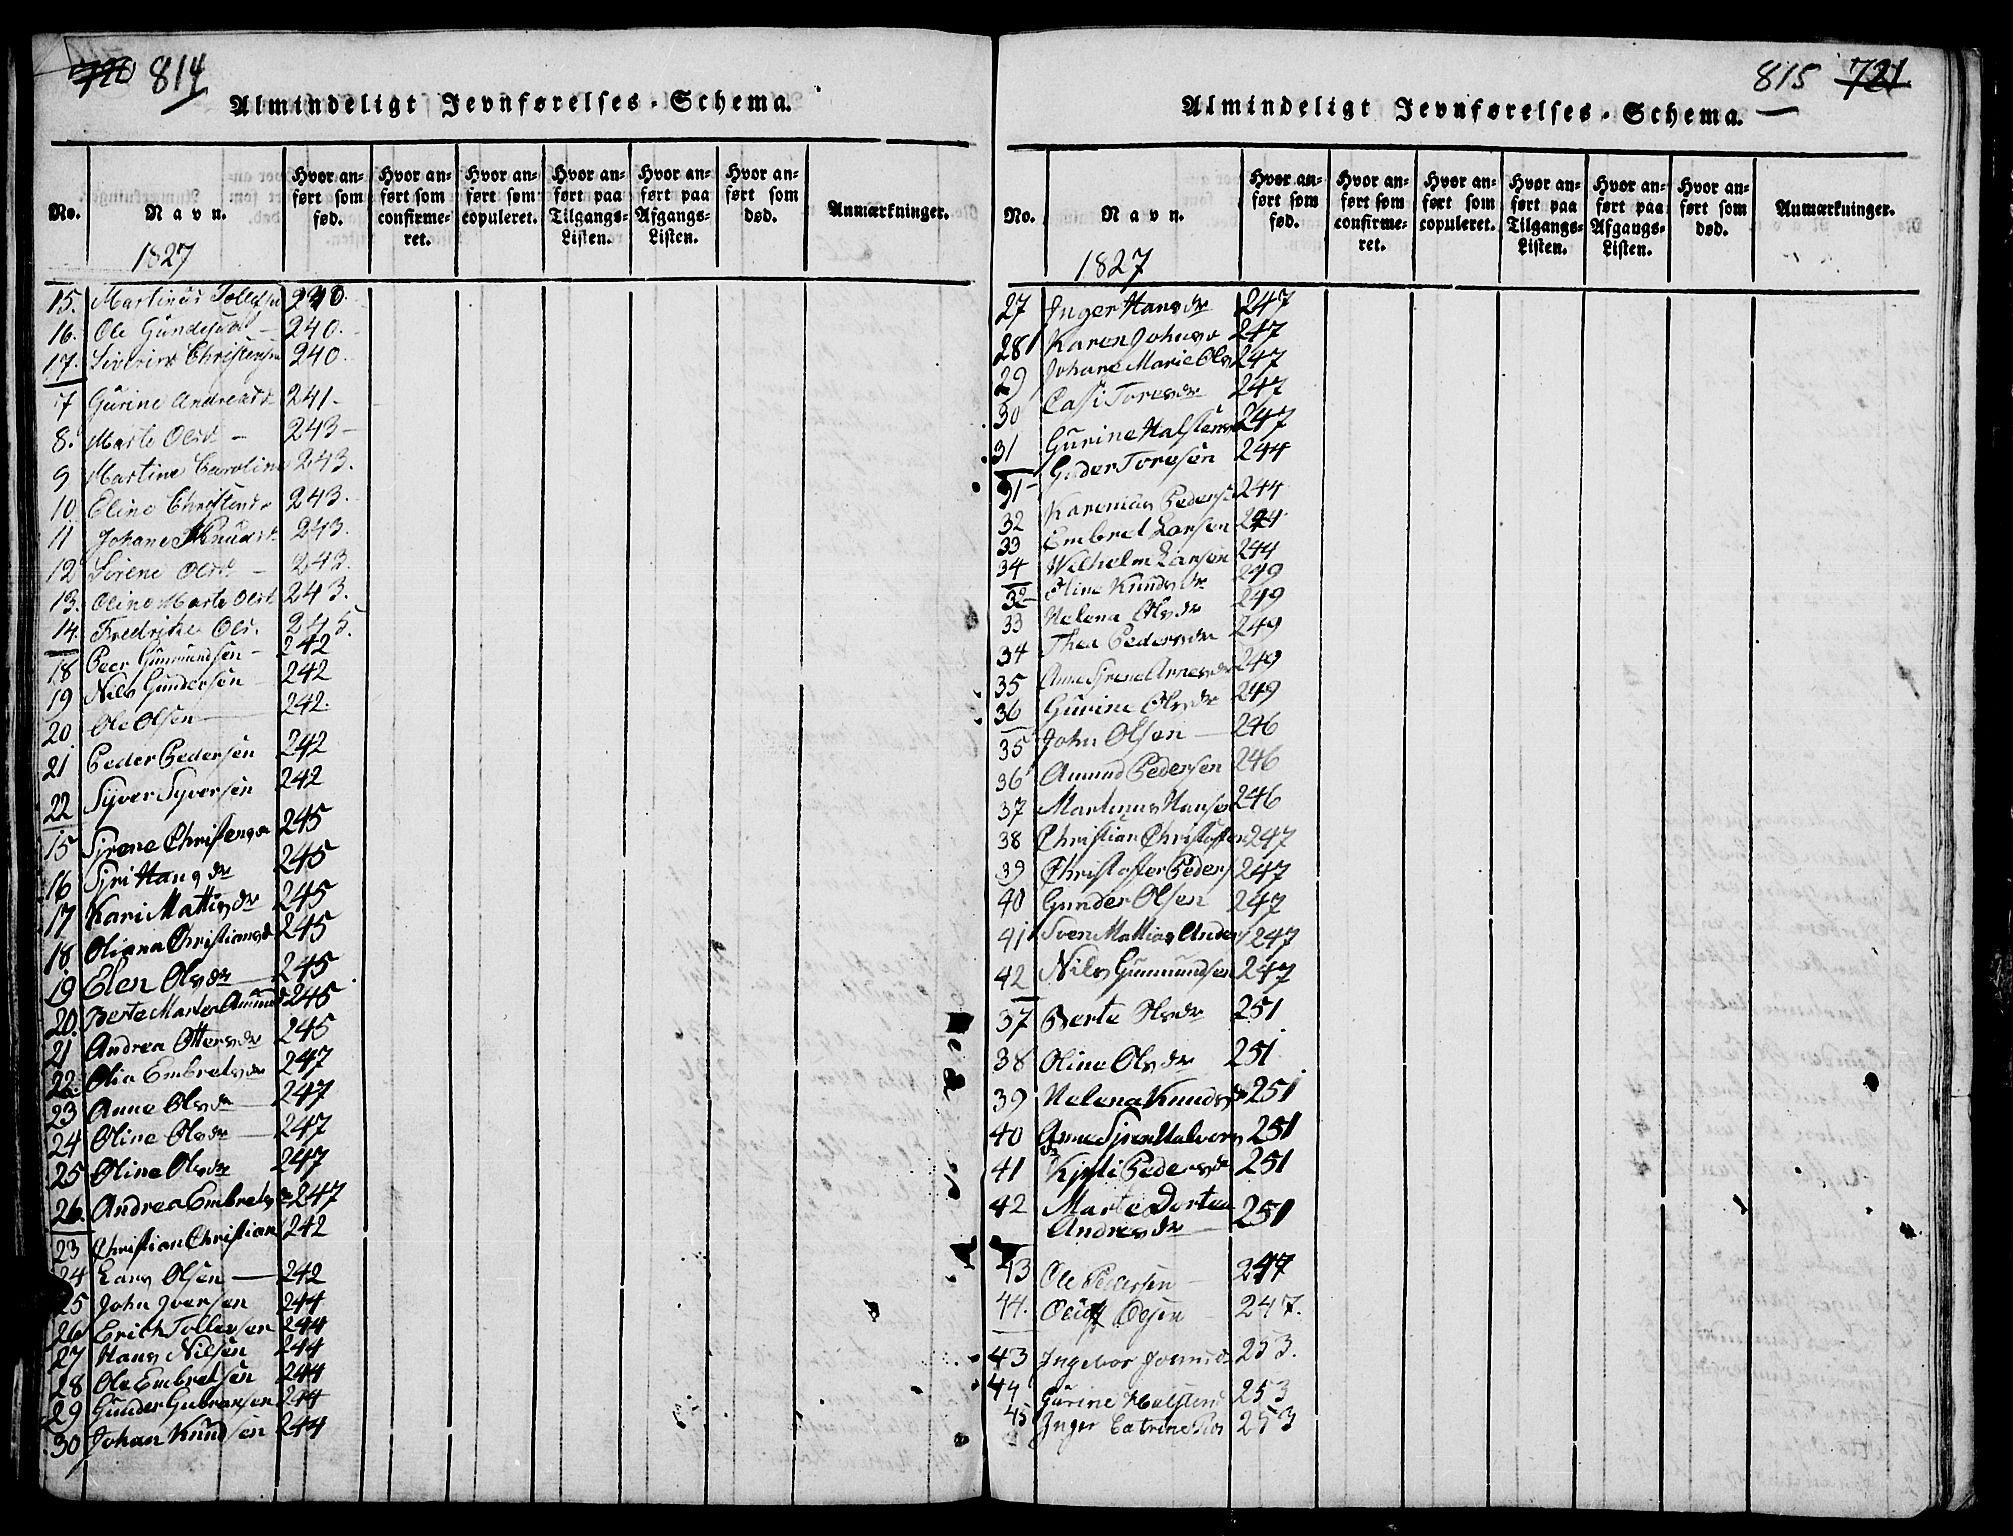 720 814
Almindeligt Jevnførelses-Schema.
No.
Navn.
Hvor anført som fød.
Hvor anført som confirmeret.
Hvor anført som copuleret.
Hvor anført paa Tilgangs-Listen.
Hvor anført paa Afgangs-Listen.
Hvor anført som død.
Anmærkninger.
1827
15. Martinus Tollefsen 240.
16. Ole Gundersen - 240.
17. Siverin Christensen 240.
7 Gurine Andreasd 241.
8. Marte Olsd - 243-
9 Martine Caroline 243.
10 Eline Christensd 243.
11 Johane Knudsd 243.
12 Sörene Olsd - 243.
13. Oline Marte Olsd 243.
14. Fredrike Ols. 245.
18 Peer Gunmundsen - 242
19 Nils Gundersen 242
20 Ole Olsen 242.
21 Peder Pedersen 242
22 Syver Syversen 242
15 Sjrene Christensdr 245
16 Sjri Hansdr 245
17 Kari Mattisdr 245
18 Oliana Christiansd 245
19 Elen Olsdr 245
20. Berte Marten Amunds 245
21 Andrea Ottersdr 245
22. Olia Embretsdr 247
23 Anne Olsdr 247
24 Oline Olsdr 247
25 Oline Olsdr 247
26. Andrea Embretsdr 247
23 Christian Christians 242
24 Lars Olsen 242
25 John Iversen 244
26 Erich Tollefsen 244
27 Hans Nilsen 244
28 Ole Embretsen 244
29 Gunder Gubransen 244
30 Johan Knudsen 244
815 721
Almindeligt Jevnførelses-Schema.
No.
Navn.
Hvor anført som fød.
Hvor anført som confirmeret.
Hvor anført som copuleret.
Hvor anført paa Tilgangs-Listen.
Hvor anført paa Afgangs-Listen.
Hvor anført som død.
Anmærkninger.
1827
27 Inger Hansdr 247
28 Karen Johnsdr 247
29 Johane Marie Ols 247
30 Casi Toresdr 247
31 Gurine Halstens 247
31 Toresen 244
32 Karenius Peders 244
33 Embret Larsen 244
34 Wilhelm Larsen 244
32 Oline Knudsdr 249
33 Helena Olsdr 249
34 Thea Pedersdr 249
35 Anne Sjrene Arnesdr 249
36 Gurine Olsdr 249
35 John Olsen 246
36 Amund Pedersen 246
37 Martinus Hansen 246
38 Christian Christoffer 247
39 Christoffer Peders 247
40 Gunder Olsen 247
41 Sven Mattias Anders 247
42 Nils Gunmundsen 247
37 Berte Olsdr 251
38 Oline Olsdr 251
39 Helena Knudsdr 251
40 Anne Sjren Halvors dr 251
41 Kjsti Pedersdr 251
42 Marte Dortea
Andresdr 251
43 Ole Pedersen 247
44. Olsen 247.
43 Ingebor 253.
44 Gurine Halstens 253
45 Inger Catrine 253